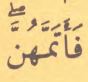 فَأَتَمَّهُنَّۖ